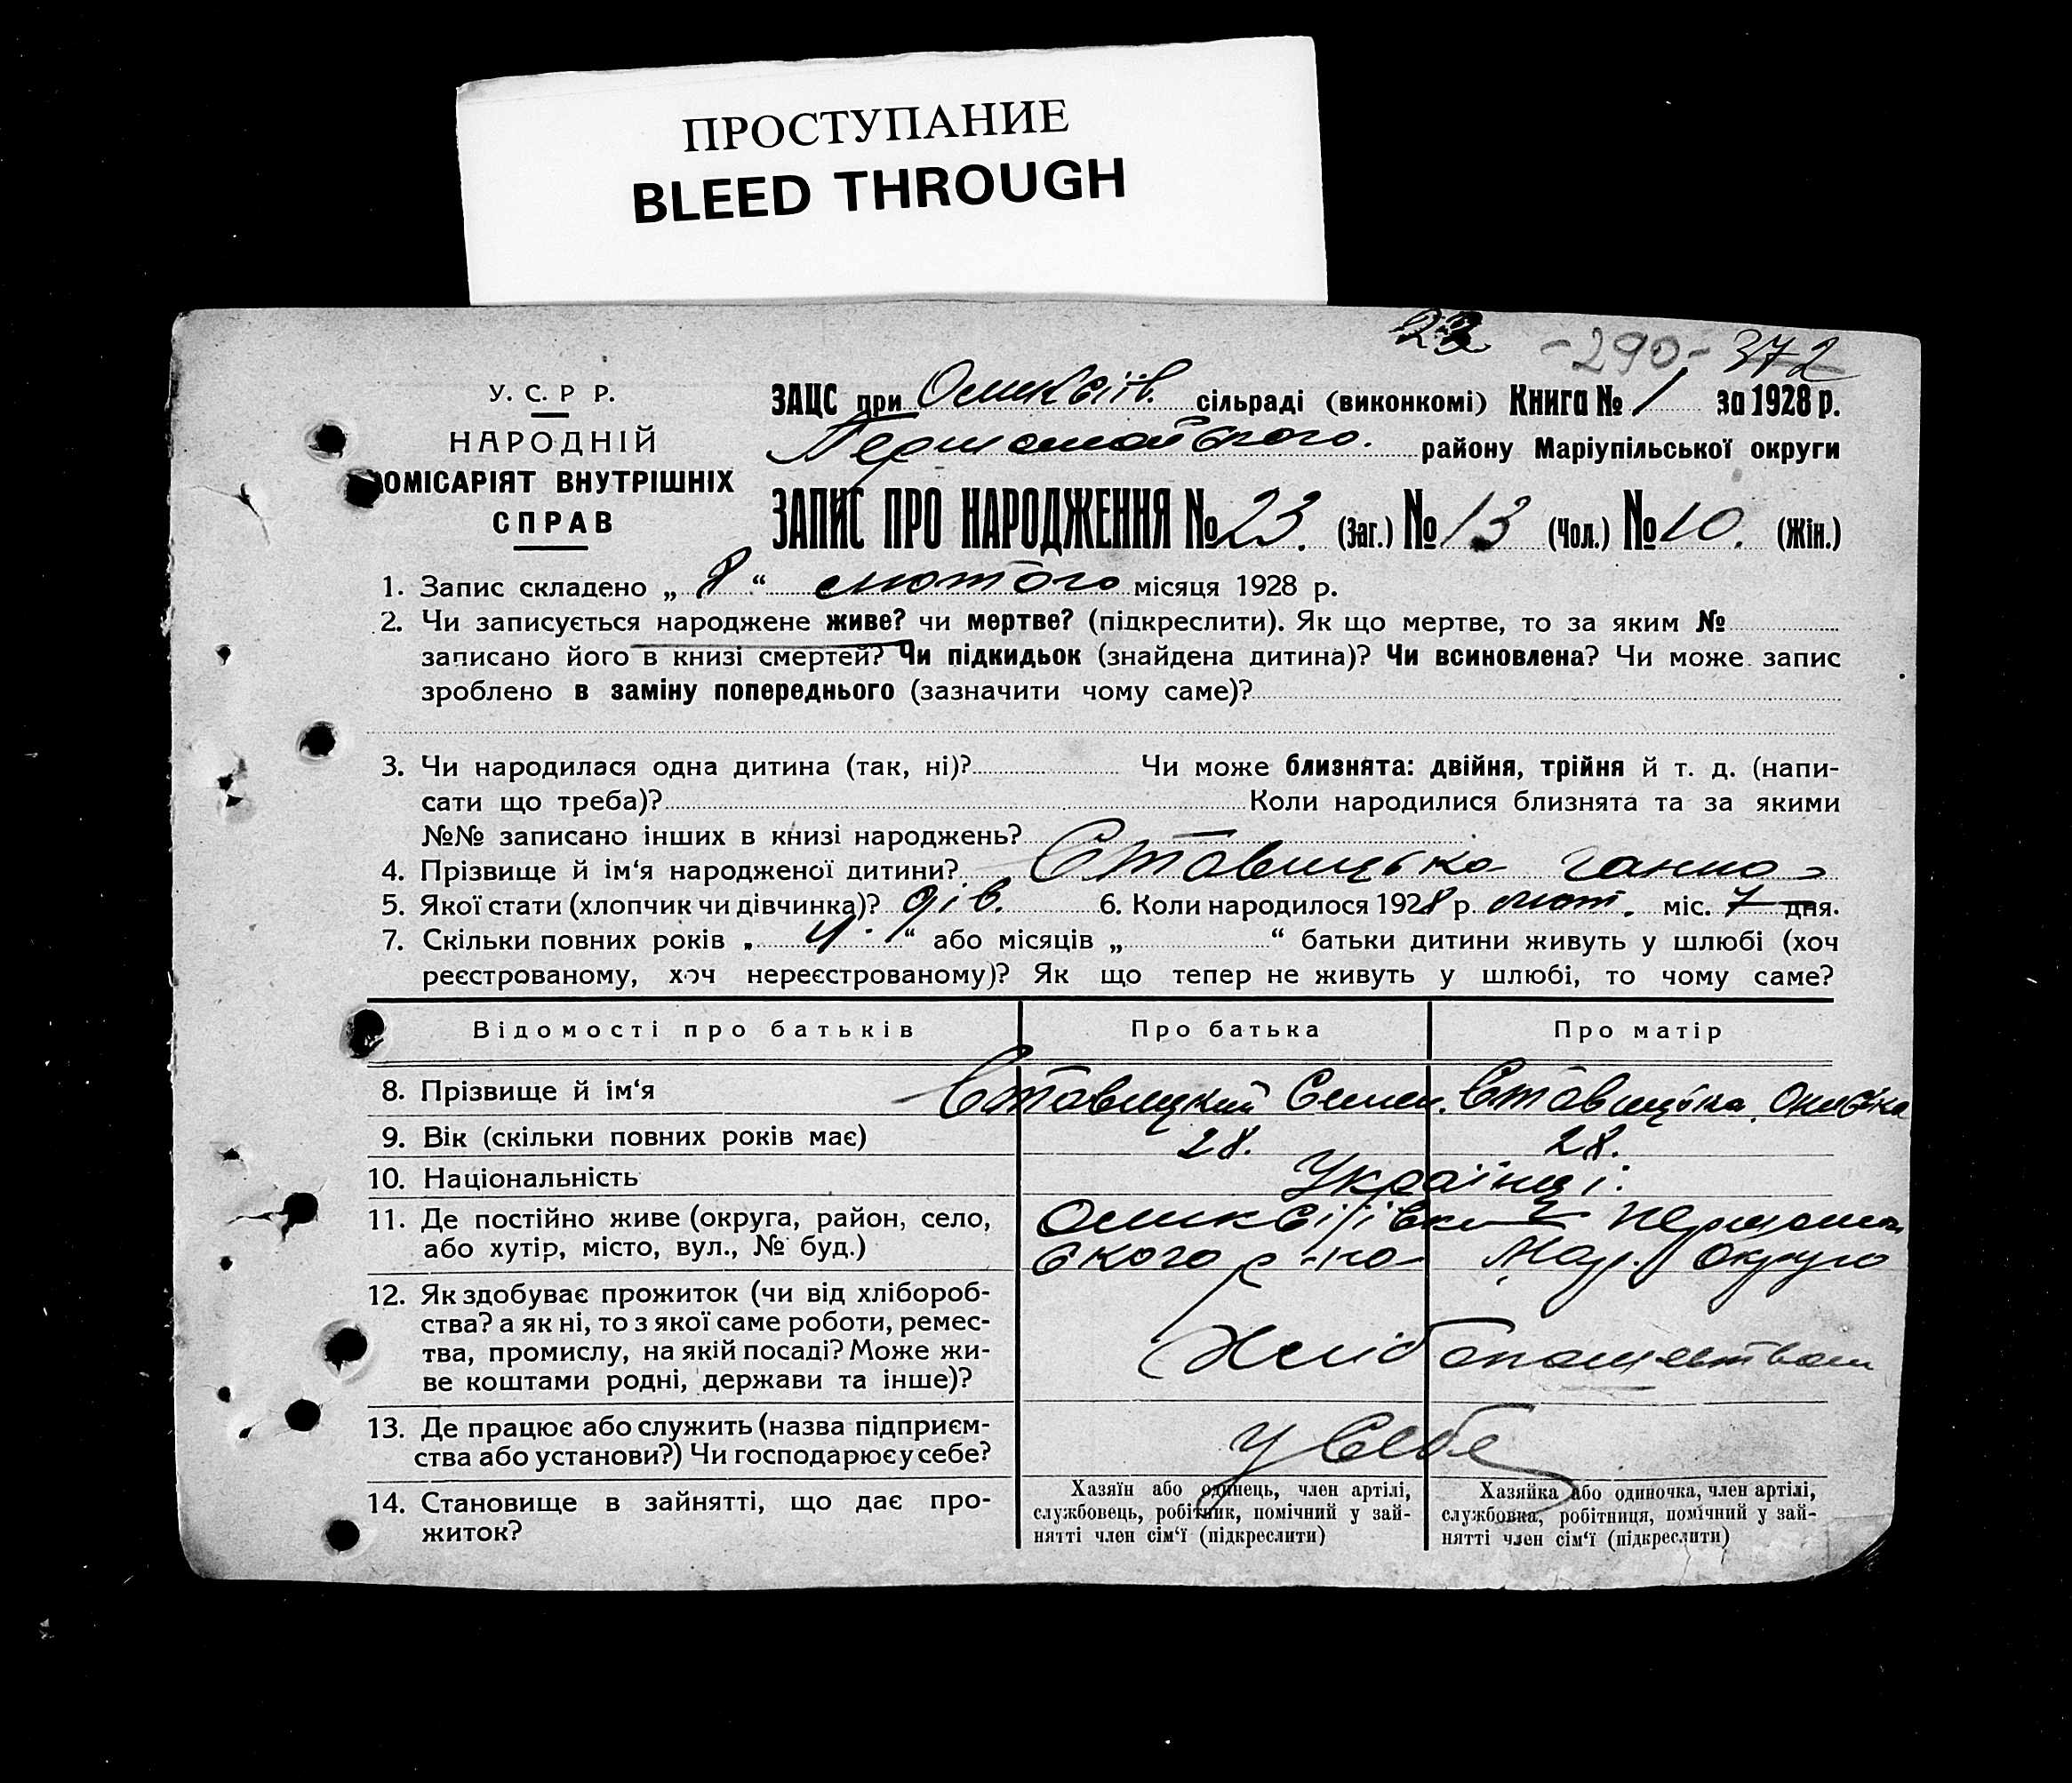 ПРОСТУПАНИЕ
BLEED THROUGH
23 -290- 372
У. С. Р Р.
НАРОДНІЙ
КОМІСАРІЯТ ВНУТРІШНІХ
СПРАВ
ЗАЦС при сільраді (виконкомі) Книга № 1 за 1928 р.
Першомайського. району Маріупільської округи
ЗАПИС ПРО НАРОДЖЕННЯ № 23. (Заг.) № 13 (Чол.) № 10. (Жін.)
1. Запис складено „ 8 “ лютого місяця 1928 р.
2. Чи записується народжене живе? чи мертве? (підкреслити). Як що мертве, то за яким №
записано його в книзі смертей? Чи підкидьок (знайдена дитина)? Чи всиновлена? Чи може запис
зроблено в заміну попереднього (зазначити чому саме)?
3. Чи народилася одна дитина (так, ні)? Чи може близнята: двійня, трійня й т. д. (напи-
сати що треба)? Коли народилися близнята та за якими
№№ записано інших в книзі народжень?
4. Прізвище й ім‘я народженої дитини? Ставицька Ганна
5. Якої стати (хлопчик чи дівчинка)? дів. 6. Коли народилося 1928 р. лют. міс. 7 дня.
7. Скільки повних років „ 4. “ або місяців „ “ батьки дитини живуть у шлюбі (хоч
реєстрованому, хоч нереєстрованому)? Як що тепер не живуть у шлюбі, то чому саме?
Відомості про батьків Про батька Про матір
8. Прізвище й ім‘я Ставицкий Семен. Ставицька
9. Вік (скільки повних років має) 28. 28.
10. Національність Українці.
11. Де постійно живе (округа, район, село,
або хутір, місто, вул., № буд.)
ського р-на Мар. округи
12. Як здобуває прожиток (чи від хлібороб-
ства? а як ні, то з якої саме роботи, ремес-
тва, промислу, на якій посаді? Може жи-
ве коштами родні, держави та інше)?
13. Де працює або служить (назва підприєм-
ства або установи?) Чи господарює у себе?
у себе
14. Становище в зайнятті, що дає про-
житок?
Хазяїн або одинець, член артілі,
службовець, робітник, помічний у зай-
нятті член сім‘ї (підкреслити)
Хазяйка або одиночка, член артілі,
службовка, робітниця, помічний у зай-
нятті член сім‘ї (підкреслити)